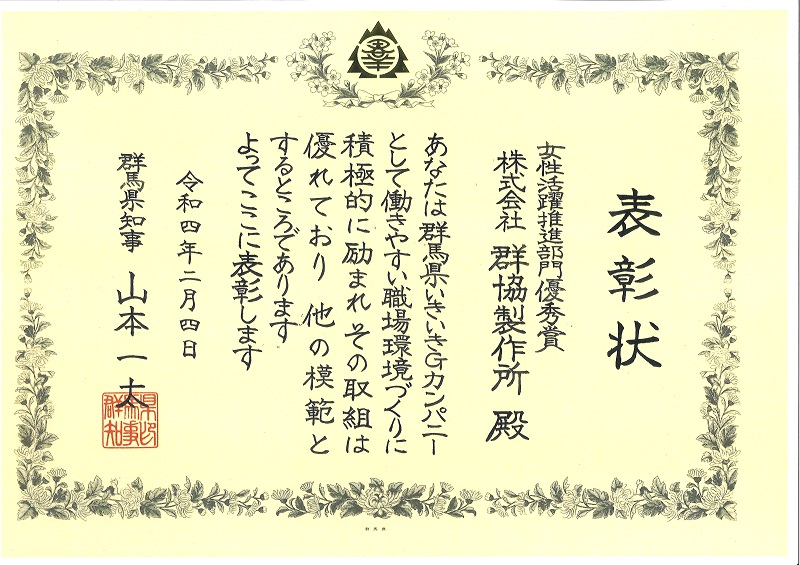 表彰状
女性活躍推進部門優秀賞
株式会社 群協製作所 殿
あなたは群馬県いきいきGカンパニー
として働きやすい職場環境づくりに
積極的に励まれその取組は
優れており 他の模範と
するところであります
よってここに表彰します
令和四年二月四日
群馬県知事 山本一太